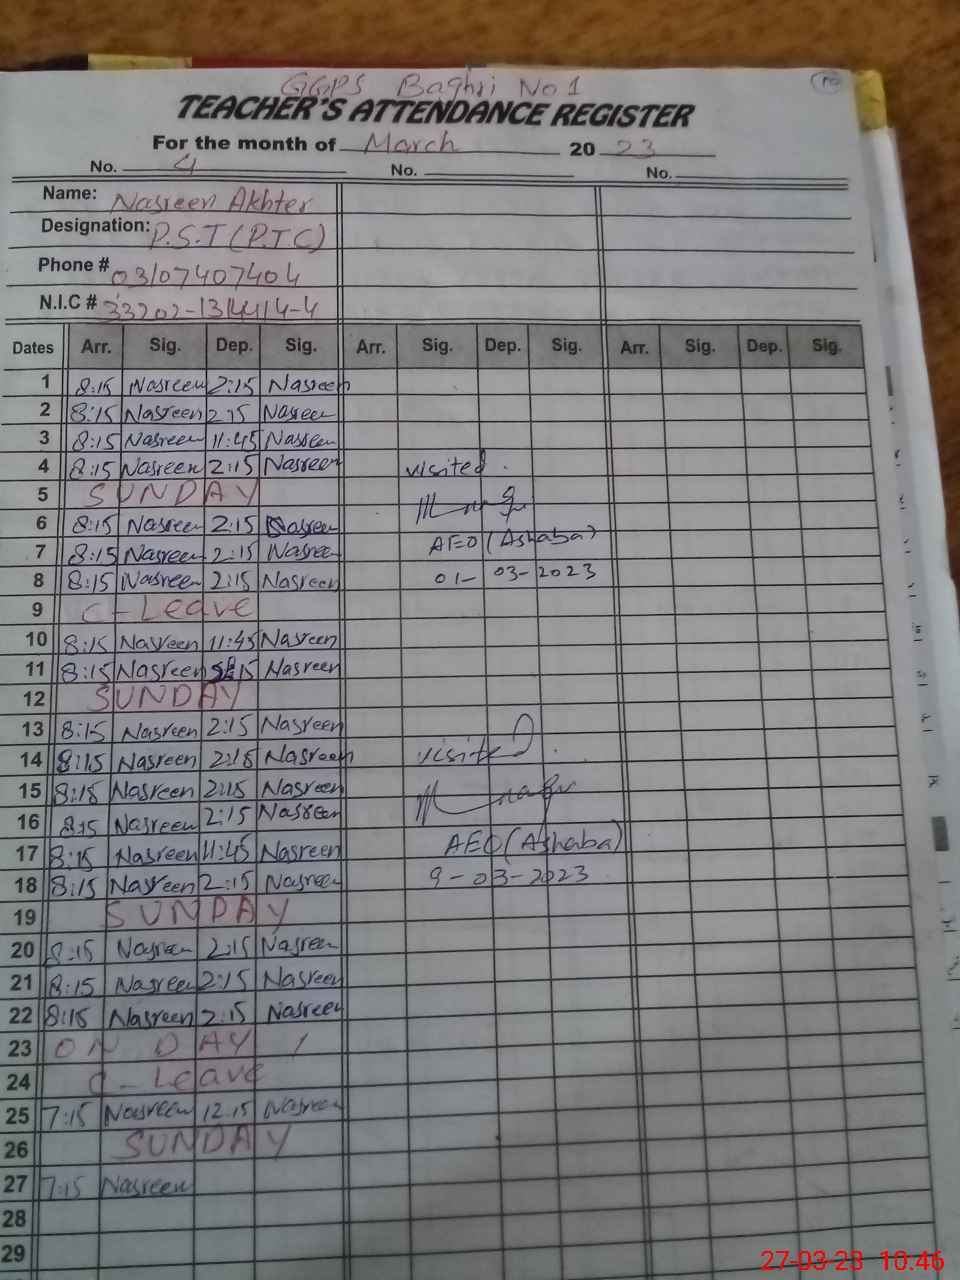 GGPS Baghri No 1
TEACHER'S ATTENDANCE REGISTER
For the month of March 20 23
No. 4 No. No.
Name: Nasreen Akhter
Designation: P.S.T (P.T.C)
Phone # 03107407404
N.I.C # 33202-1314414-4
Dates Arr. Sig. Dep. Sig. Arr. Sig. Dep. Sig. Arr. Sig. Dep. Sig.
1 8:15 Nasreen 2:15 Nasreen
2 8:15 Nasreen 2:15 Nasreen
3 8:15 Nasreen 11:45 Nasreen
4 8:15 Nasreen 2:15 Nasreen visited
5 SUNDAY
6 8:15 Nasreen 2:15 Nasreen
7 8:15 Nasreen 2:15 Nasreen AEO (Ashaba)
8 8:15 Nasreen 2:15 Nasreen 01-03-2023
9 C-Leave
10 8:15 Nasreen 11:45 Nasreen
11 8:15 Nasreen 15 Nasreen
12 SUNDAY
13 8:15 Nasreen 2:15 Nasreen
14 8:15 Nasreen 2:15 Nasreen visited
15 8:15 Nasreen 2:15 Nasreen
16 8:15 Nasreen 2:15 Nasreen
17 8:15 Nasreen 11:45 Nasreen AEO (Ashaba)
18 8:15 Nasreen 2:15 Nasreen 9-03-2023
19 SUNDAY
20 8:15 Nasreen 2:15 Nasreen
21 8:15 Nasreen 2:15 Nasreen
22 8:15 Nasreen 2:15 Nasreen
23 ON DAY
24 C-Leave
25 7:15 Nasreen 12.15 Nasreen
26 SUNDAY
27 7:15 Nasreen
28
29
27-03-23 10:46